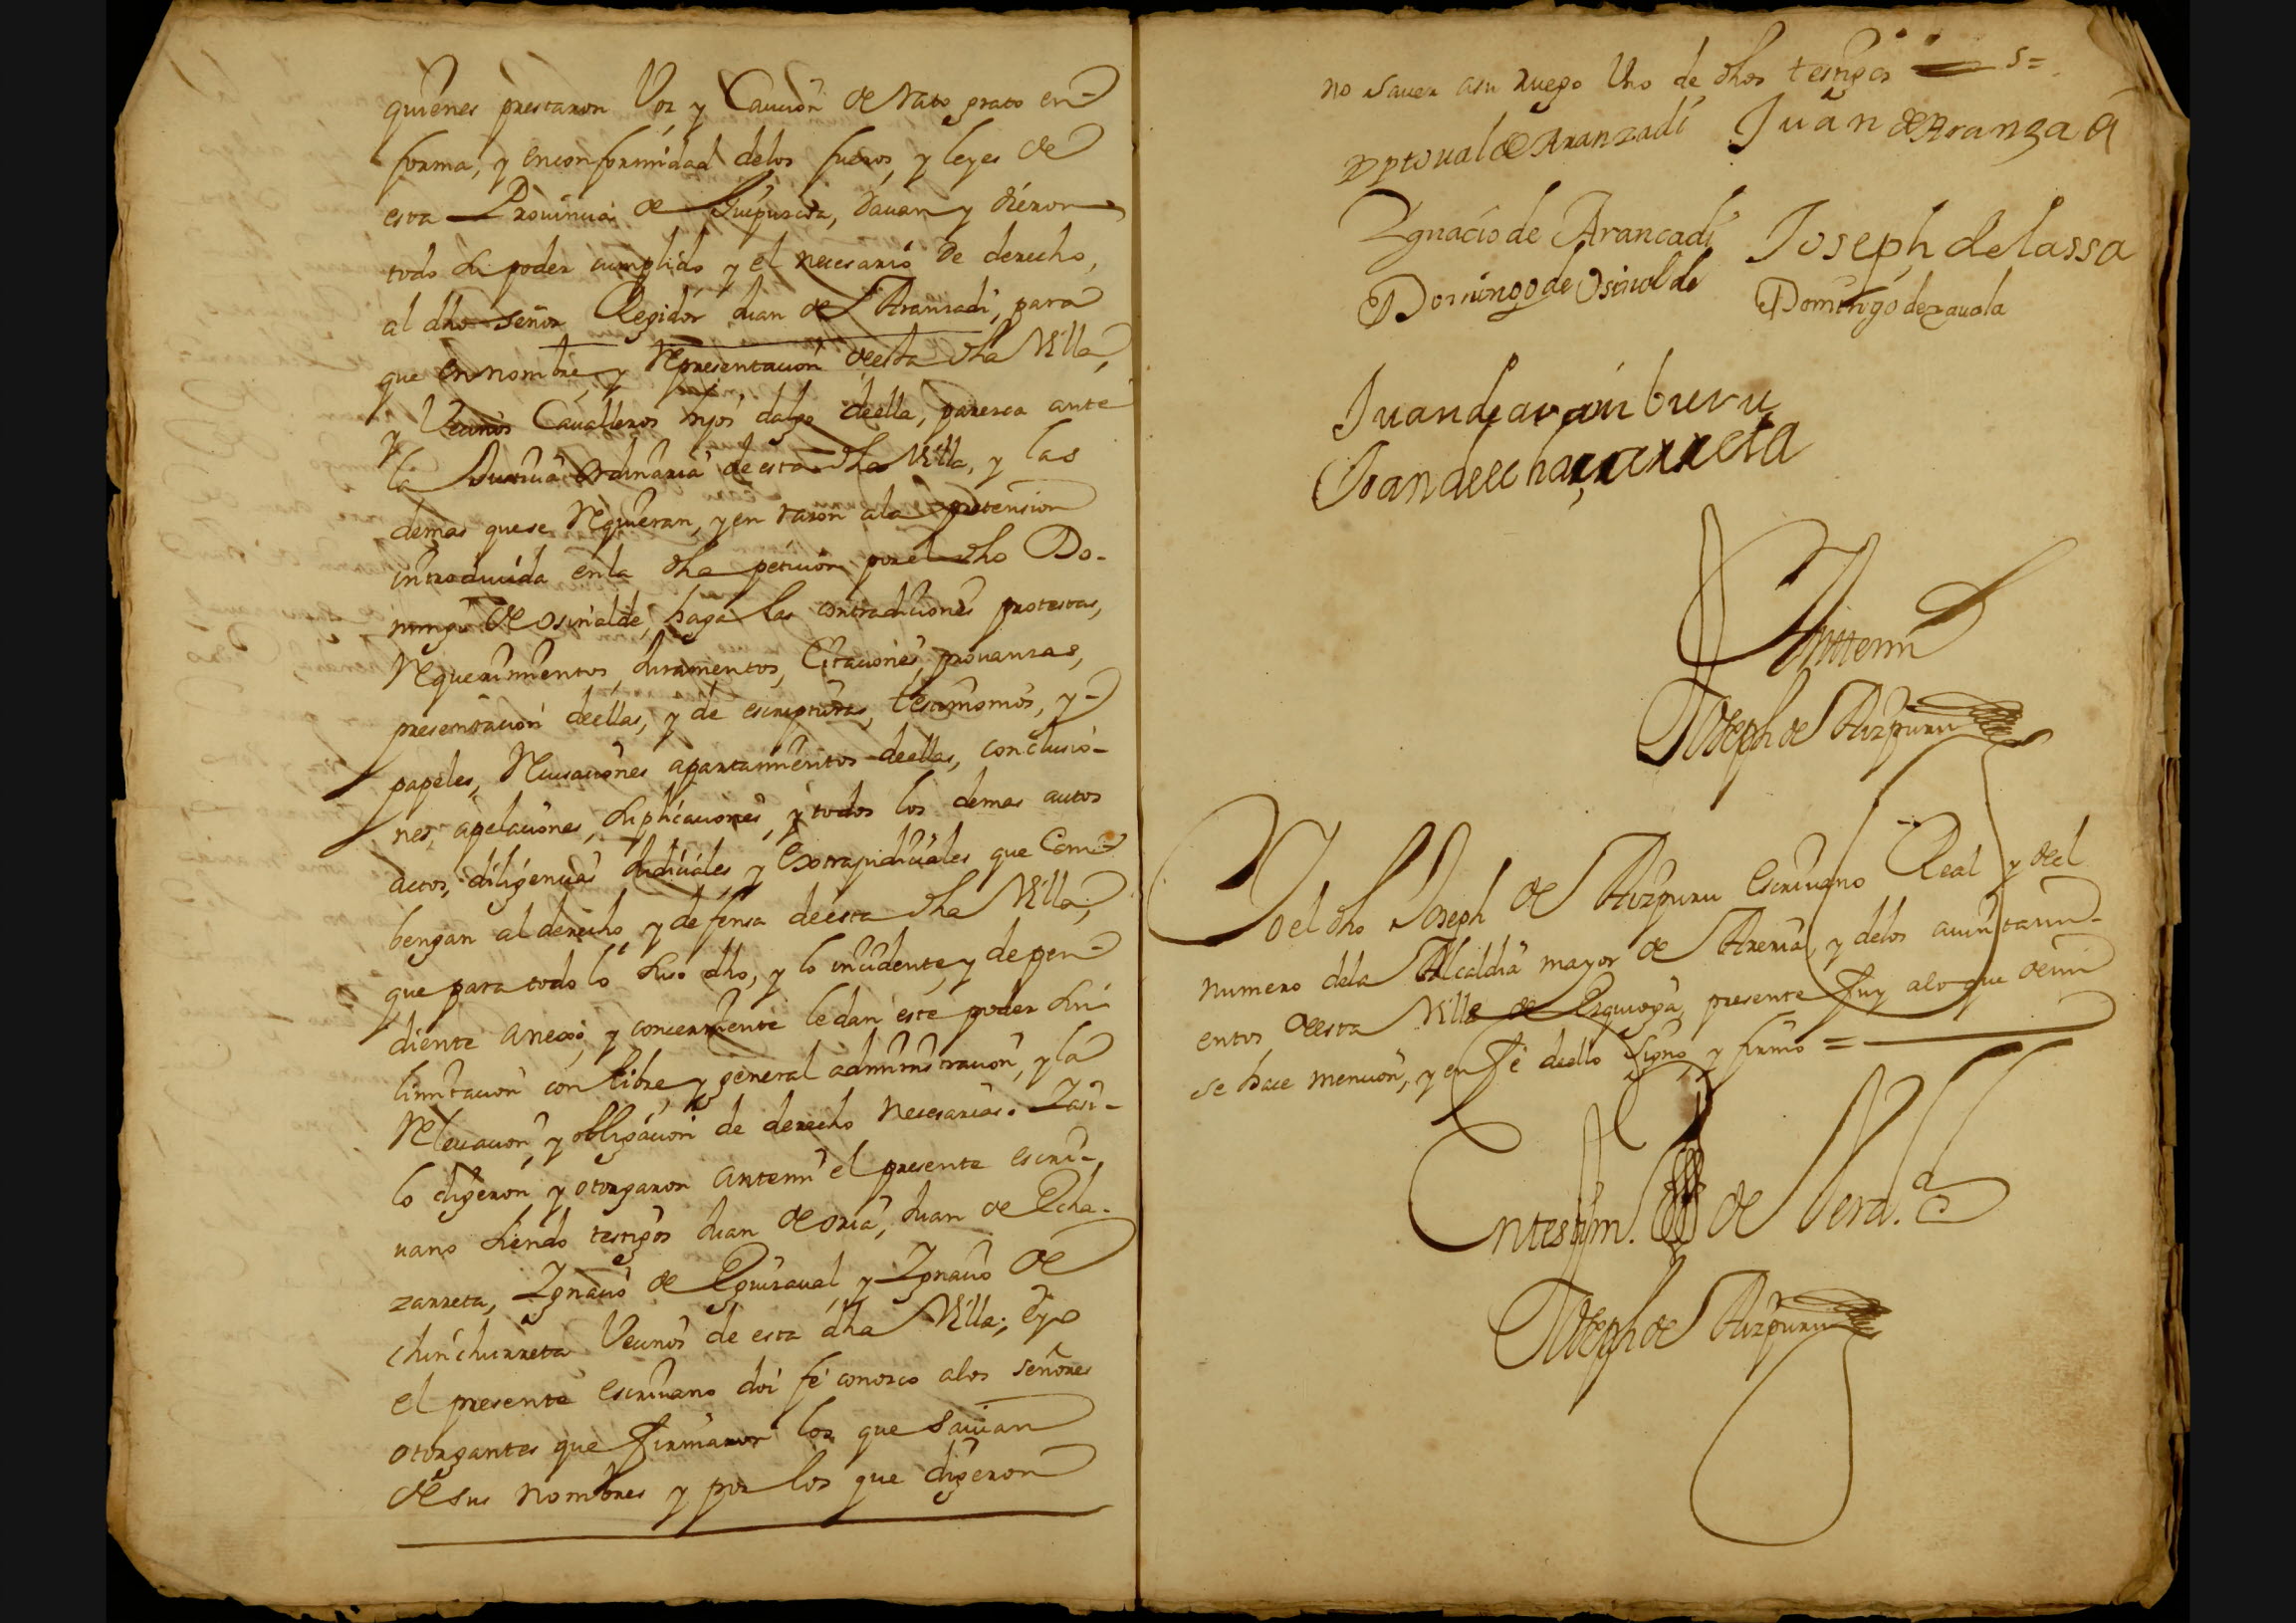 quienes prestaron Voz y Cauçion de rato grato en
forma, y en conformidad delos fueros, y leyes de
esta Prouincia de Guipuzcoa, dauan y dieron
todo su poder cumplido y el necesario de derecho,
al dho señor Regidor Juan de Aranzadi, para
que en nombre, y Representacion deesta dha Villa,
y Vecinos Caualleros hijos dalgo deella, paresca ante
la Justicia ordinaria de esta dha Villa, y las
demas quese Requieran, y en razon ala pretension
introducida en la dha peticion por el dho Do-
mingo de Osinalde, haga las contradiciones protestas,
Requerimientos, Juramentos, Citaciones, prouanzas,
presentacion deellas, y de escripturas, testimonios, y
papeles, Recusaciones apartamientos deellas, conclusio-
nes, apelaciones, suplicaciones, y todos los demas autos
actos, diligencias Judiciales y Extrajudiciales que Com-
bengan al derecho, y defensa deesta dha Villa,
que para todo lo suso dho, y lo incidente, y depen-
diente anexo, y concerniente le dan este poder sin
limitacion con libre, y general administracion, y la
Releuacion, y obligacion de derecho necesarias. Y asi
lo digeron y otorgaron antemi el presente escri-
uano siendo testigos Juan de oria, Juan de Echa-
zarreta, Ygnacio de Eguizaual, y Ygnacio de
chinchurreta Vecinos de esta dha Villa; e yo
el presente escriuano doi fe conosco alos señores
otorgantes que firmaron los que sauian
de sus nombres y por los que digeron
no sauer asu ruego Uno de dhos testigos s=
Xptoual de Aranzadi Juan de Aranzadi
Ygnacio de Arancadi Joseph de lassa
Domingo de Osinolde Domingo de zauala
Juan de aramburu
Joan de echazarreta
Antemi
Joseph de Aizpuru
Yo el dho Joseph de Aizpuru escriuano Real y del
numero dela Alcaldia mayor de Areria, y delos aiuntami-
entos deesta Villa de Ezquioga, presente fuy alo que demi
se hace mencion, y en fe deello signo, y firmo =
En testim. de Verd.
Joseph de Aizpuru